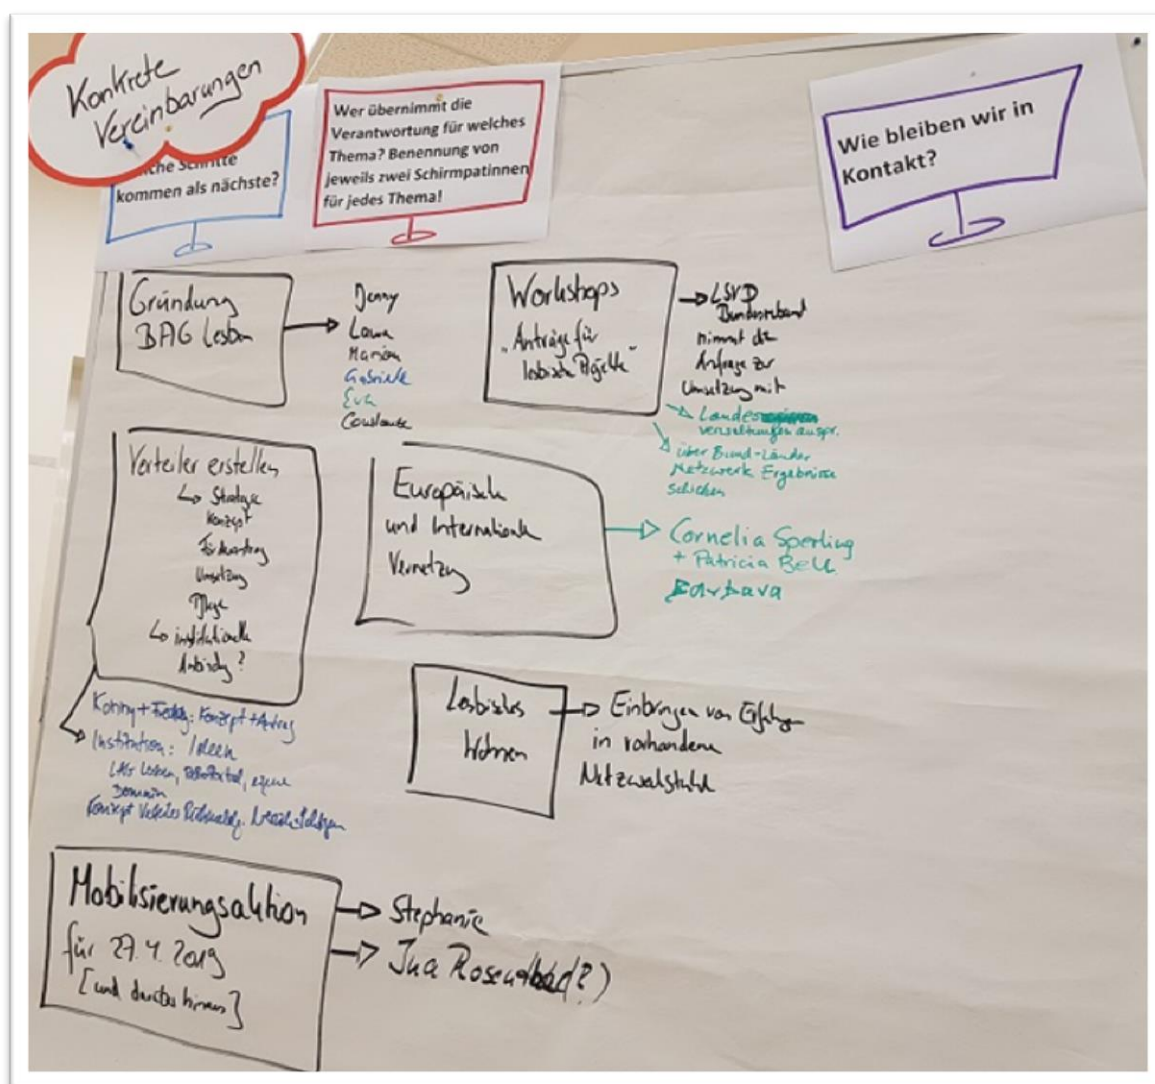 Konkrete
Vereinbarungen
Schritte
kommen als nächste?
Wer übernimmt die
Verantwortung für welches
Thema? Benennung von
jeweils zwei Schirmpatinnen
für jedes Thema!
Wie bleiben wir in
Kontakt?
Gründung
BAG Lesben
Jenny
Laura
Marion
Gabriele
Eva
Constanze
Workshops
„Anträge für
lesbische Projekte“
LSVD
Bundesverband
nimmt die
Anfrage zur
Umsetzung mit
Landes
verwaltungen anspr.
über Bund-Länder
Netzwerk Ergebnisse
schicken
Verteiler erstellen
Strategie
Konzept
Förderantrag
Umsetzung
Pflege
institutionelle
Anbindg?
Konzept + Antrag
Institution: Ideen
LAG Lesben, eigene
Domain
Konzept
Europäische
und Internationale
Vernetzung
Cornelia Sperling
+ Patricia Bell
Barbara
Lesbisches
Wohnen
Einbringen von Erfahrungen
in vorhandene
Netzwerkstruktur
Mobilisierungsaktion
für 27.4.2019
[und darüber hinaus]
Stephanie
Ina Rosen